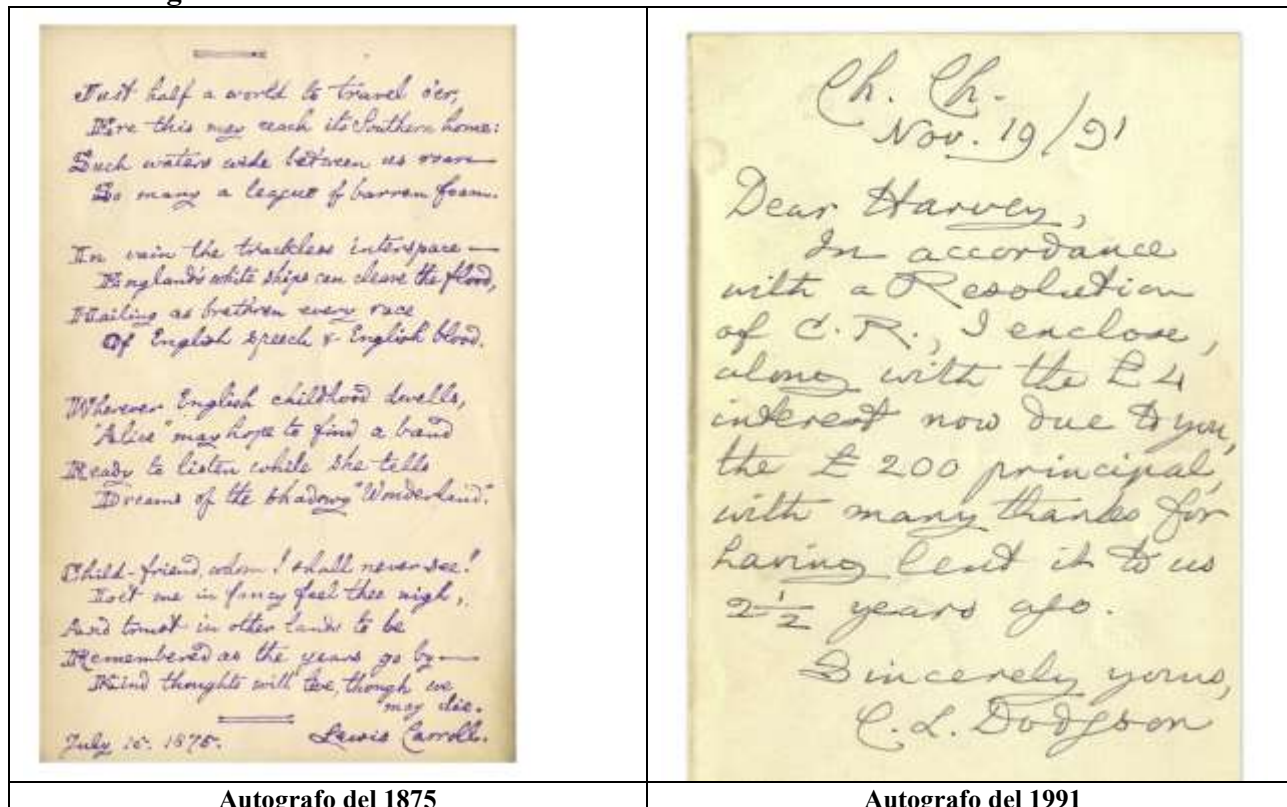 Just half a world to travel o'er,
Ere this may reach its Southern home:
Such waters wide between us roar—
So many a league of barren foam.
In vain the trackless interspace—
England's white ships can cleave the flood,
Hailing as brethren every race
Of English speech & English blood.
Wherever English childhood dwells,
"Alice" may hope to find a band
Ready to listen while she tells
Dreams of the shadowy "Wonderland".
Child-friend, whom I shall never see!
Let me in fancy feel thee nigh,
And trust in other lands to be
Remembered as the years go by—
Kind thoughts will live, though we
may die.
July 15. 1875.
Lewis Carroll.
Autografo del 1875
Ch. Ch.
Nov. 19/91
Dear Harvey,
In accordance
with a Resolution
of C.R., I enclose,
along with the £4
interest now due to you,
the £200 principal,
with many thanks for
having lent it to us
2½ years ago.
Sincerely yours,
C. L. Dodgson
Autografo del 1991